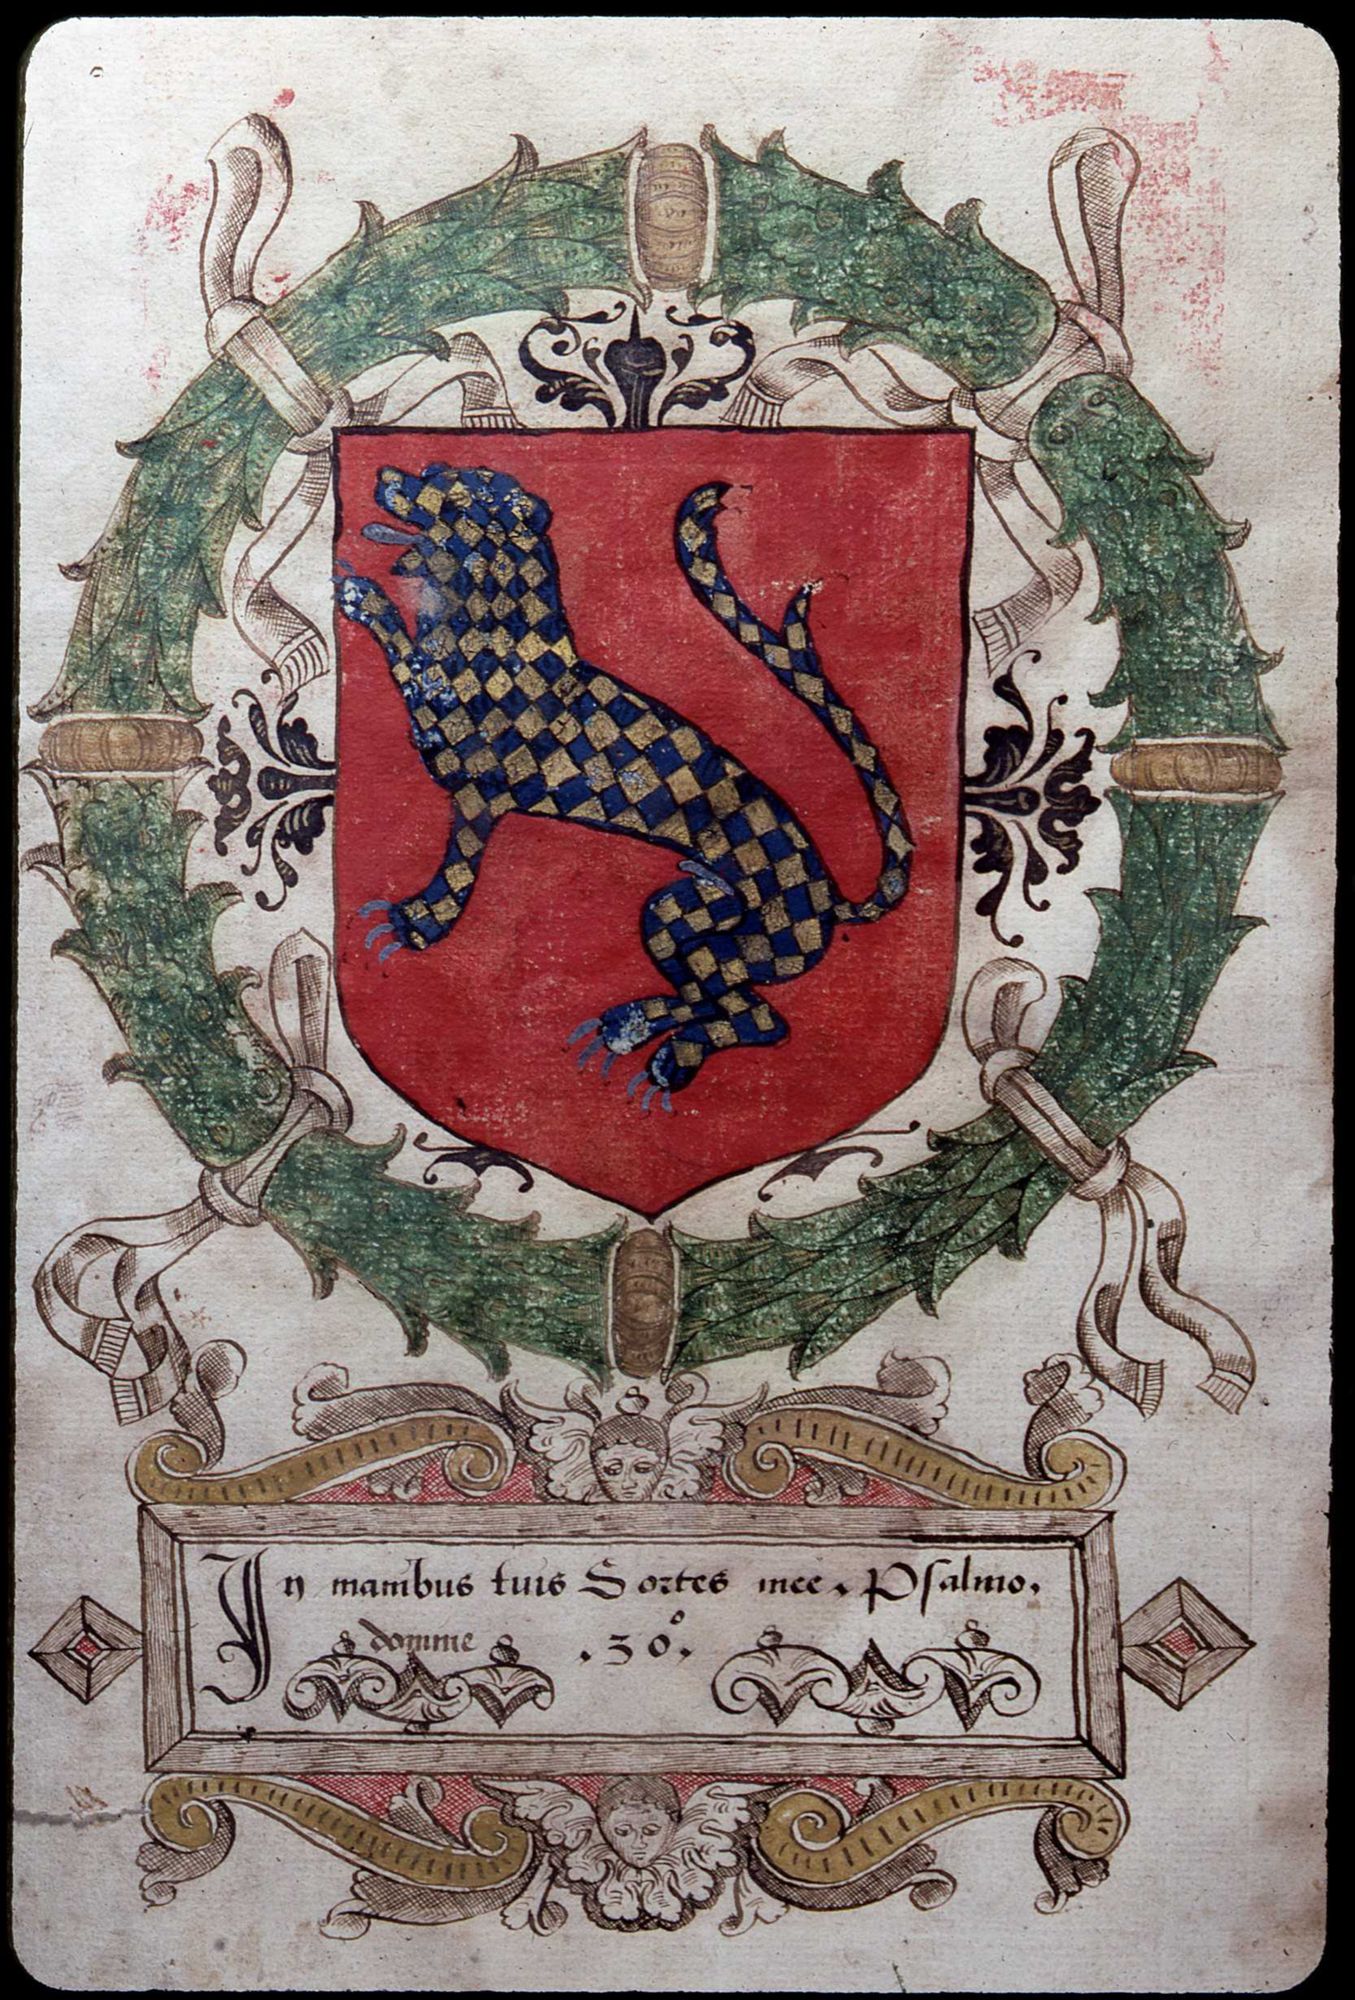 In manibus tuis Sortes mee. Psalmo.
domine .30°.